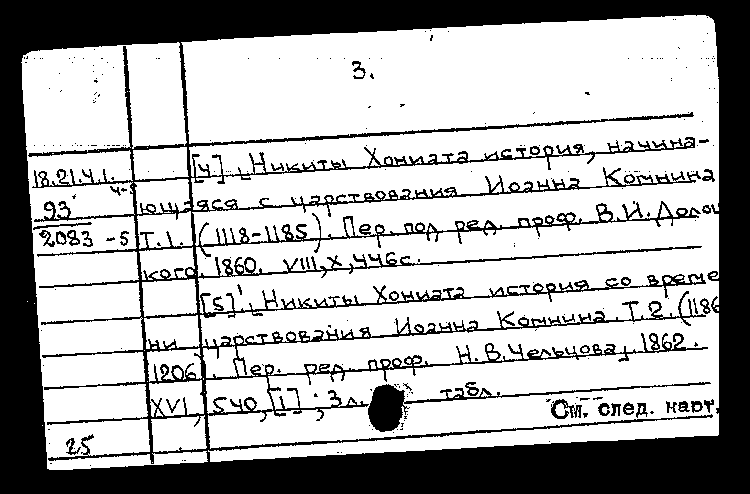 3.
18.21.4.1. [4] Никиты Хониата история, начина-
4-5 ющаяся с царствования Иоанна Комнина
93
2083 -5 Т.1. (1118-1185). Пер. под ред. проф. В.И. Долоц
кого. 1860. VIII, X, 446с.
[5] Никиты Хониата история со време
ни царствования Иоанна Комнина. Т.2. (1186
1206). Пер. ред. проф. Н.В. Чельцова, 1862.
XVI, 540, [1]; 3л. табл.
См. след. карт.
25